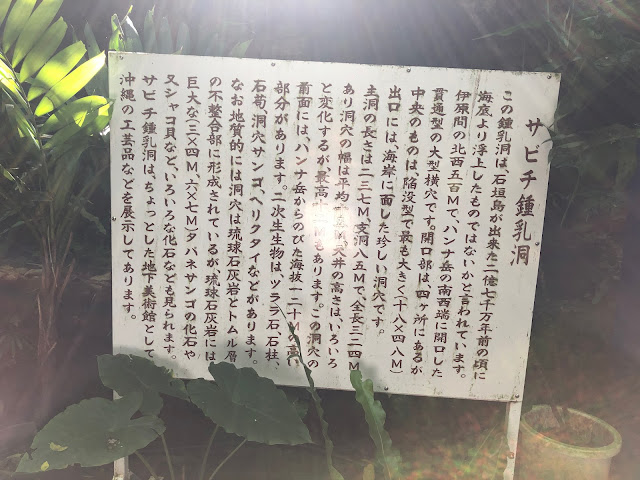 サビチ鍾乳洞
この鍾乳洞は、石垣島が出来た二億七千万年前の頃に
海底より浮上したものではないかと言われています。
伊原間の北西五百Mで、ハンナ岳の南西端に開口した
貫通型の大型横穴です。開口部は、四ヶ所にあるが
中央のものは、陥没型で最も大きく(十八×四八M)
出口には、海岸に面した珍しい洞穴です。
主洞の長さは二三七M、支洞八五Mで、全長三二四M
あり洞穴の幅は平均 天井の高さは、いろいろ
と変化するが最高 もあります。この洞穴の
前面には、ハンナ岳からのびた海抜一二十Mの高い
部分があります。二次生生物は、ツララ石、石柱、
石筍、洞穴サンゴ、ヘリクタイなどがあります。
なお地質的には洞穴は琉球石灰岩とトムル層
の不整合部に形成されているが、琉球石灰岩には
巨大な(三×四M、六×七M)タバネサンゴの化石や
又シャコ貝など、いろいろな化石なども見られます。
サビチ鍾乳洞は、ちょっとした地下美術館として
沖縄の工芸品などを展示してあります。